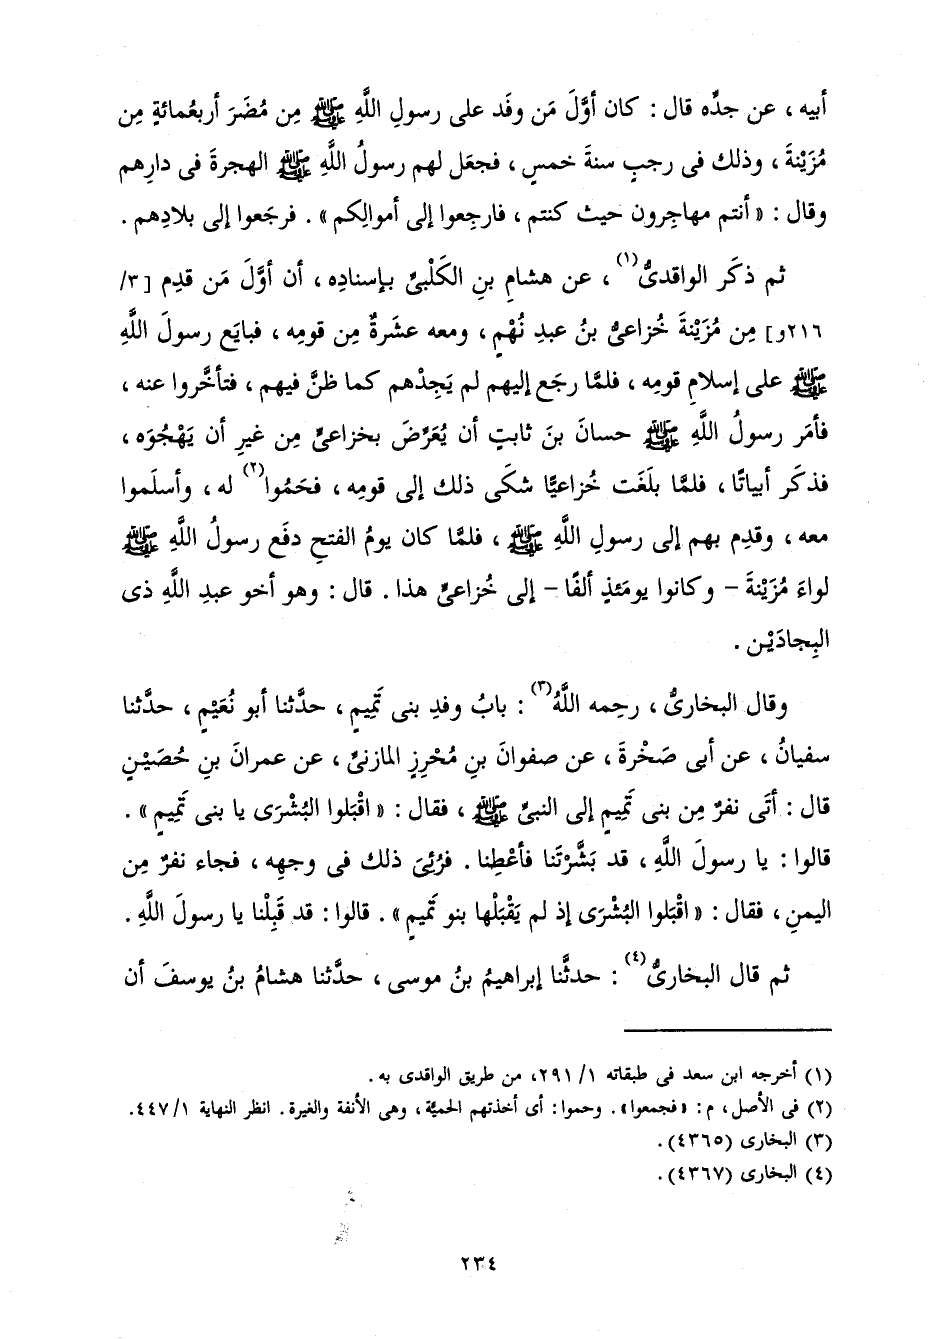 أبيه ، عن جدِّه قال : كان أوَّلَ مَن وفَد على رسولِ اللَّهِ ﷺ مِن مُضَرَ أربعُمائةٍ مِن
مُزَيْنةَ ، وذلك فى رجبٍ سنةَ خمسٍ ، فجعَل لهم رسولُ اللَّهِ ﷺ الهجرةَ فى دارِهم
وقال : « أنتم مهاجِرون حيث كنتم ، فارجِعوا إلى أموالِكم » . فرجَعوا إلى بلادِهم .
ثم ذكَر الواقدىُّ(١) ، عن هشامِ بنِ الكَلْبىِّ بإسنادِه ، أن أوَّلَ مَن قدِم [ ٣/
٢١٦و] مِن مُزَيْنةَ خُزاعىُّ بنُ عبدِ نُهْمٍ ، ومعه عشَرةٌ مِن قومِه ، فبايَع رسولَ اللَّهِ
ﷺ على إسلامِ قومِه ، فلمَّا رجَع إليهم لم يَجِدْهم كما ظنَّ فيهم ، فتأخَّروا عنه ،
فأمَر رسولُ اللَّهِ ﷺ حسانَ بنَ ثابتٍ أن يُعَرِّضَ بخزاعىٍّ مِن غيرِ أن يَهْجُوَه ،
فذكَر أبياتًا ، فلمَّا بلَغَت خُزاعيًّا شكَى ذلك إلى قومِه ، فحَمُوا(٢) له ، وأسلَموا
معه ، وقدِم بهم إلى رسولِ اللَّهِ ﷺ ، فلمَّا كان يومُ الفتحِ دفَع رسولُ اللَّهِ ﷺ
لواءَ مُزَيْنةَ – وكانوا يومَئذٍ ألفًا – إلى خُزاعىٍّ هذا . قال : وهو أخو عبدِ اللَّهِ ذى
البِجادَيْن .
وقال البخارىُّ ، رحِمه اللَّهُ(٣) : بابُ وفدِ بنى تَمِيمٍ ، حدَّثنا أبو نُعَيْمٍ ، حدَّثنا
سفيانُ ، عن أبى صَخْرةَ ، عن صفوانَ بنِ مُحْرِزٍ المازنىِّ ، عن عمرانَ بنِ حُصَيْنٍ
قال : أتَى نفرٌ مِن بنى تَمِيمٍ إلى النبىِّ ﷺ ، فقال : « اقْبَلوا البُشْرَى يا بنى تَمِيمٍ » .
قالوا : يا رسولَ اللَّهِ ، قد بَشَّرْتَنا فأعْطِنا . فرُئِىَ ذلك فى وجهِه ، فجاء نفرٌ مِن
اليمنِ ، فقال : « اقْبَلوا البُشْرَى إذ لم يَقْبَلْها بنو تَمِيمٍ » . قالوا : قد قَبِلْنا يا رسولَ اللَّهِ .
ثم قال البخارىُّ(٤) : حدثَّنا إبراهيمُ بنُ موسى ، حدَّثنا هشامُ بنُ يوسفَ أن
(١) أخرجه ابن سعد فى طبقاته ١/ ٢٩١، من طريق الواقدى به .
(٢) فى الأصل ، م : « فجمعوا » . وحموا : أى أخذتهم الحميَّة ، وهى الأنفة والغيرة . انظر النهاية ١/ ٤٤٧.
(٣) البخارى (٤٣٦٥) .
(٤) البخارى (٤٣٦٧) .
٢٣٤